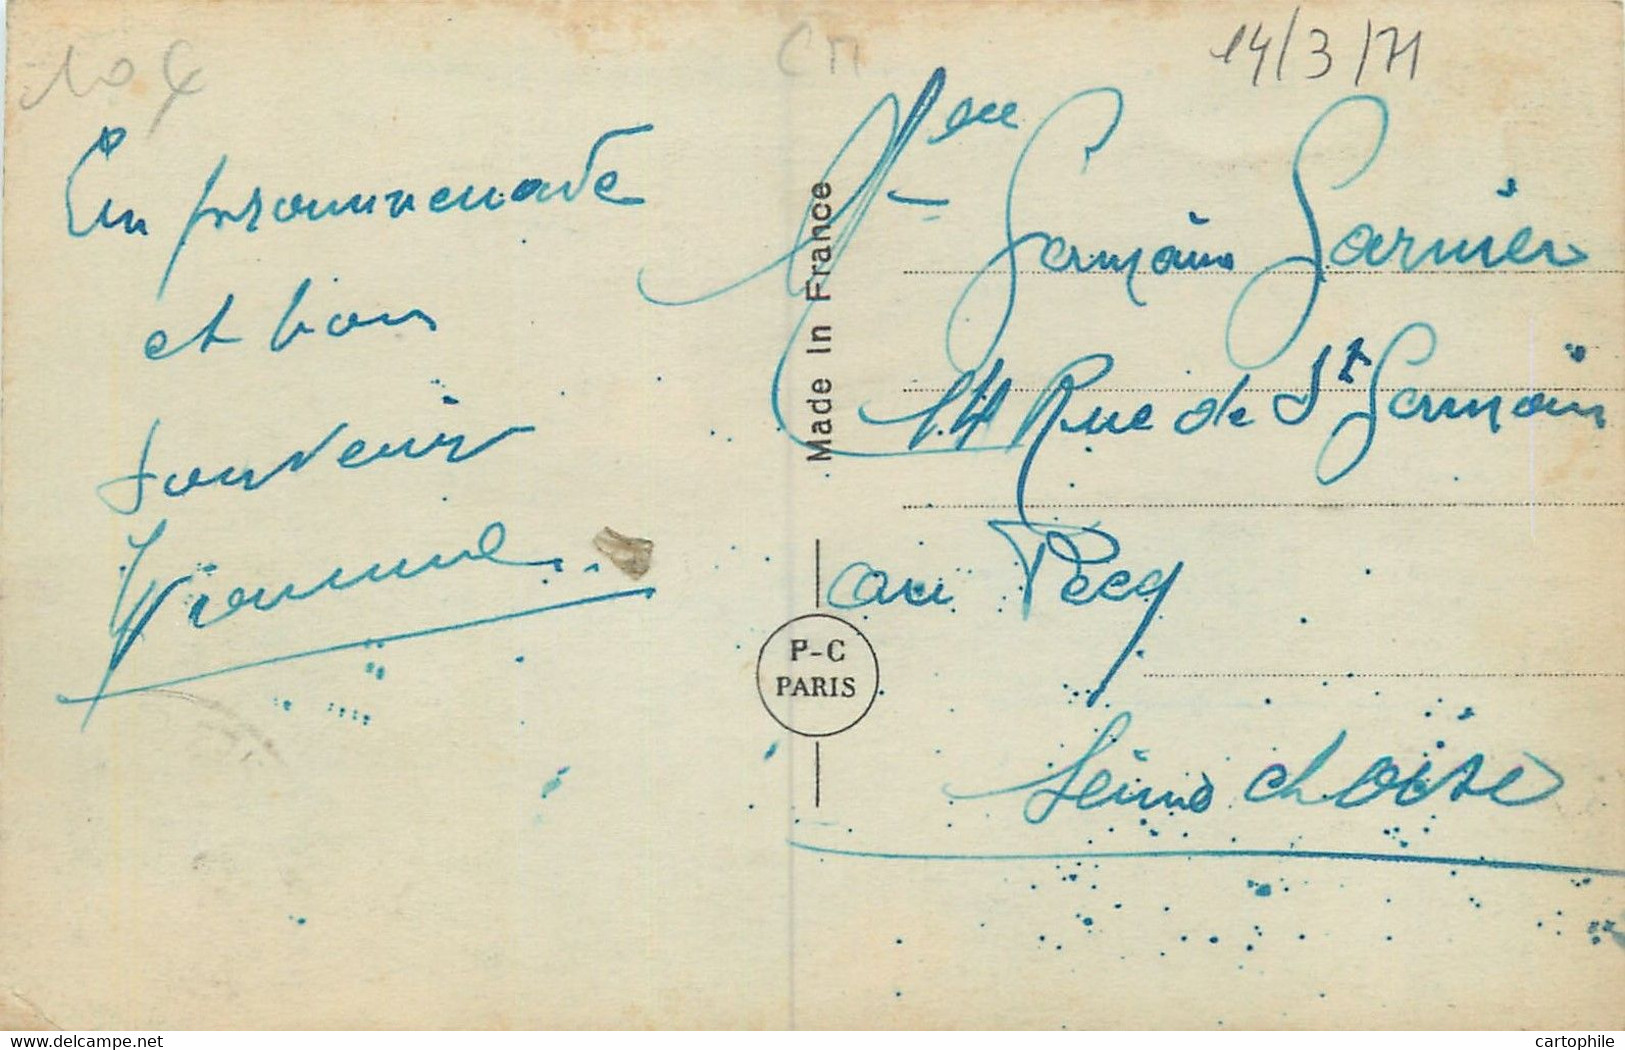 14/3/71
CM
En prommenade
et bon
souvenir
Yvonne
Made In France
P-C
PARIS
Mme Germain Garnier
14 Rue de St Germain
au Pecq
Seine et Oise
delcampe.net
cartophile